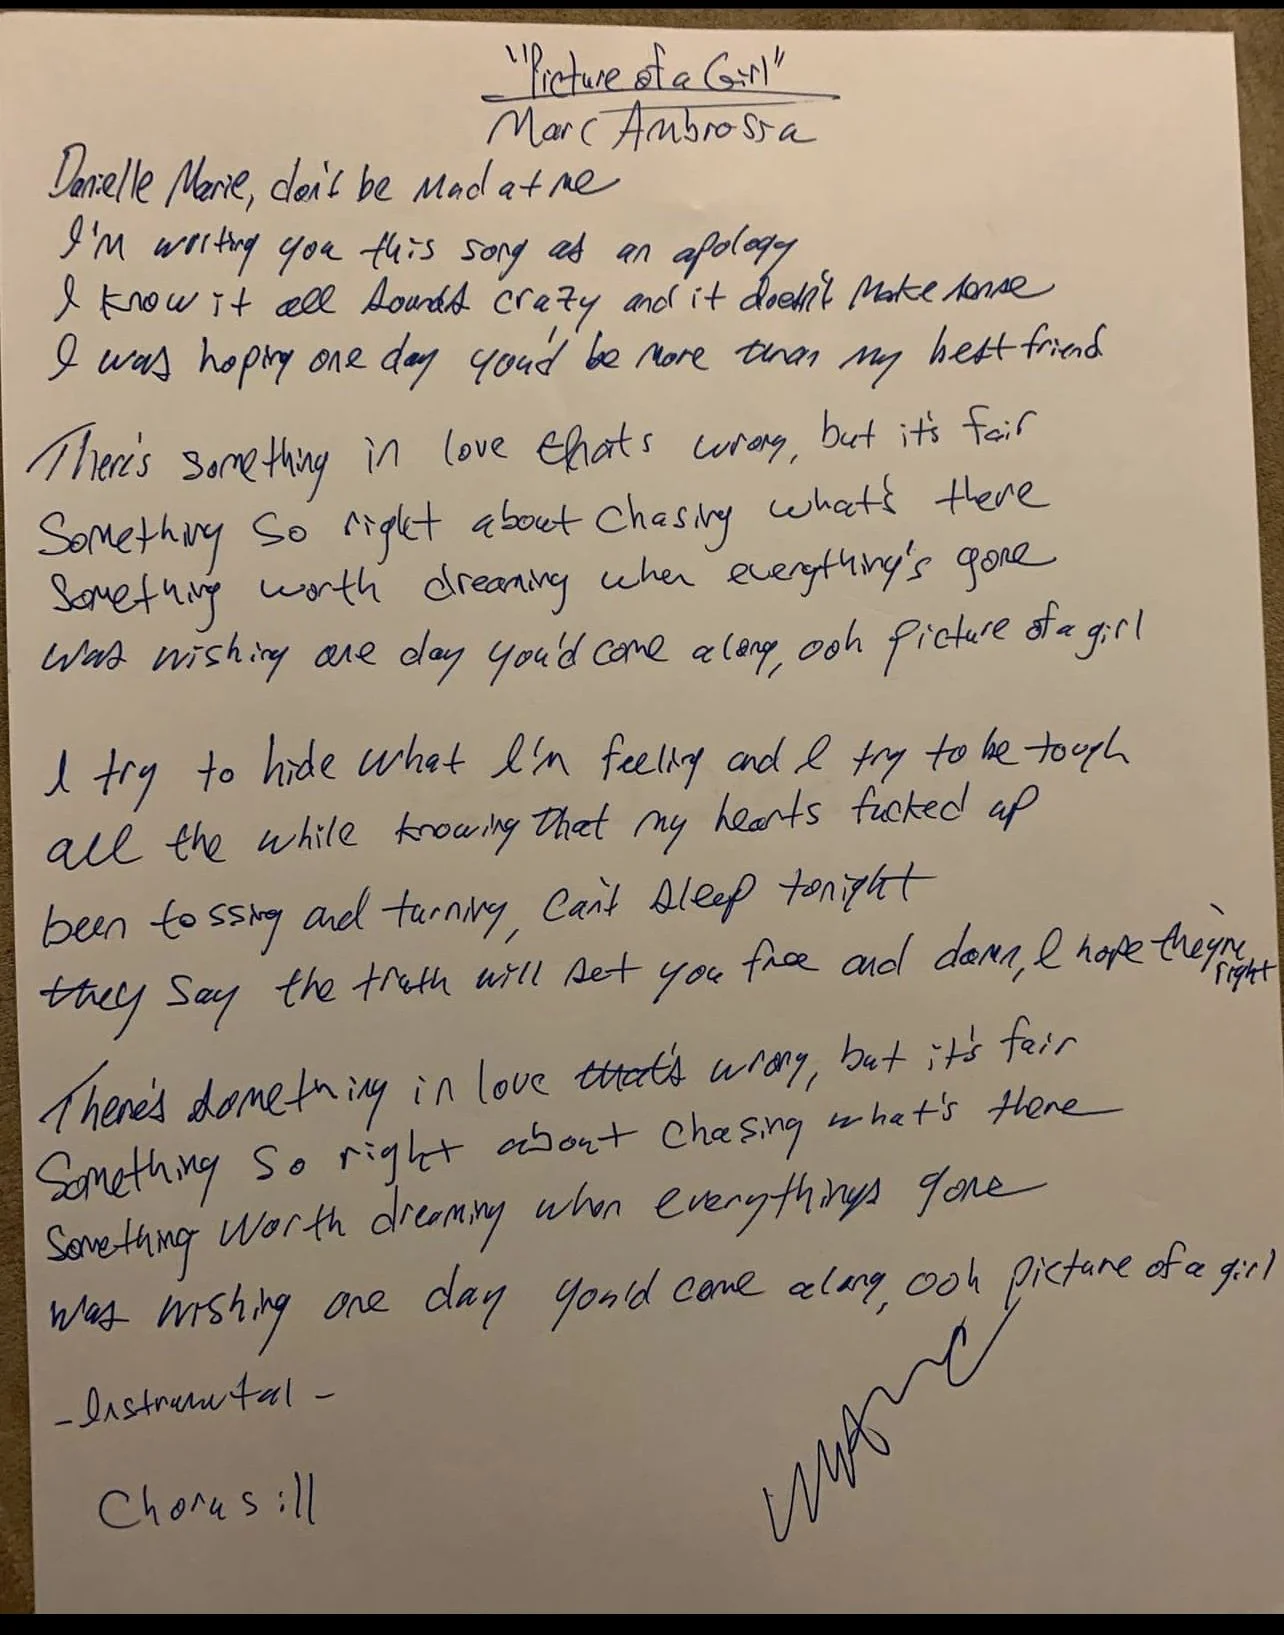 "Picture of a Girl"
Marc Ambrosia
Danielle Marie, don't be mad at me
I'm writing you this song as an apology
I know it all sounds crazy and it doesn't make sense
I was hoping one day you'd be more than my best friend
There's something in love that's wrong, but it's fair
Something so right about chasing what's there
Something worth dreaming when everything's gone
was wishing one day you'd come along, ooh picture of a girl
I try to hide what I'm feeling and I try to be tough
all the while knowing that my hearts fucked up
been tossing and turning, can't sleep tonight
they say the truth will set you free and damn, I hope they're right
There's something in love that's wrong, but it's fair
Something so right about chasing what's there
Something worth dreaming when everythings gone
was wishing one day you'd come along, ooh picture of a girl
- Instrumental -
Chorus :||